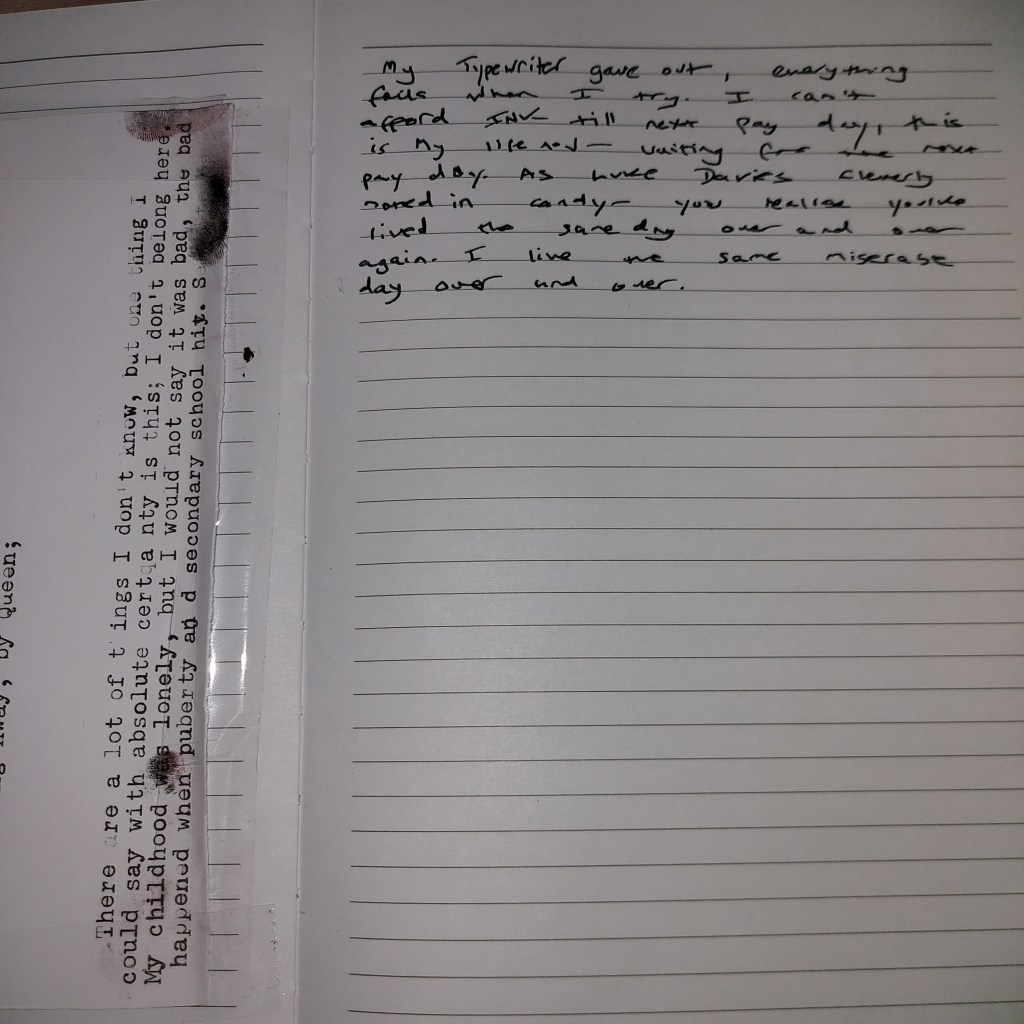 ng Away, by Queen;
There are a lot of t ings I don't know, but one thing i
could say with absolute certa nty is this; I don't belong here.
My childhood was lonely, but I would not say it was bad, the bad
happened when puberty an d secondary school hit. S
My Typewriter gave out, everything
fails when I try. I can't
afford INK till next pay day, this
is my life now — waiting for the next
pay day. As Luke Davies cleverly
in candy — you realise you've
lived the same day over and over
again. I live the same miserable
day over and over.